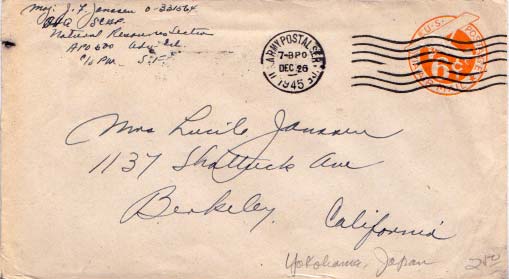 Maj. J. F. Janssen O-331564
GHQ SCAP.
Natural Resources Section
APO 500
C/o PM. S.F.
U.S. ARMY POSTAL SERVICE
7-8 PO
DEC 26
1945
U.S. POSTAGE
6c
AIR MAIL
Mrs Lucile Janssen
1137 Shattuck Ave
Berkeley. California
Yokohama, Japan